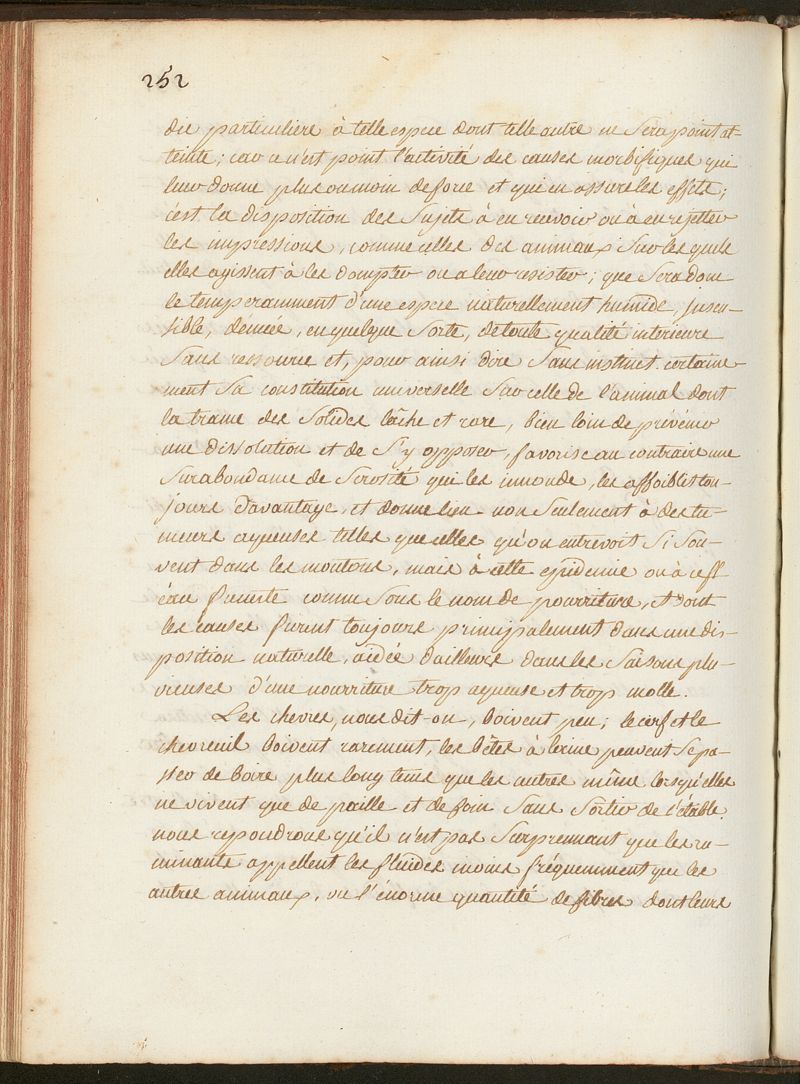 252
die particuliere à telle espece dont telle autre ne sera point at-
teinte; car ce n'est point l'activité des causes morbifiques qui
leur donne plus ou moin de force et qui en assure les effets;
c'est la disposition des sujets à en recevoir ou à en rejetter
les impressions, comme celles des animaux sur les quels
elles agissent à les dompter ou a leur resister; que sera donc
le temperamment d'une espece naturellement humide, insen-
sible, denuée, en quelque sorte, de toute qualité interieure
sans ressource et, pour ainsi dire sans instinct. certaine-
ment sa constitution universelle sur celle de l'animal dont
la trame des solides lâche et rare, bien loin de prévénir
une dissolution et de s'y opposer, favorise au contraire une
surabondance de serosité qui les innonde, les affoiblit tou-
jours d'avantage, et donne lieu non seulement à des tu-
meurs aqueuses telles que celles qu'on entrevoit si sou-
vent dans les moutons, mais à cette epidemie ou à ce fl
éau funeste connu sous le nom de pourriture, et dont
les causes furent toujours principalement dans une dis-
position naturelle, aidée d'ailleurs dans les saisons plu-
vieuses d'une nourriture trop aqueuse et trop molle.
Les chevres, nous dit-on, boivent peu; le cerf et le
chevreuil boivent rarement, les bêtes à laine peuvent se pa-
sser de boire plus long tems que les autres même lorsqu'elles
ne vivent que de paille et de foin sans sortir de l'étable.
nous repondrons qu'il n'est pas surprennant que les ru-
minants appellent les fluides moins fréquemment que les
autres animaux, vu l'énorme quantité de fibres dont leurs